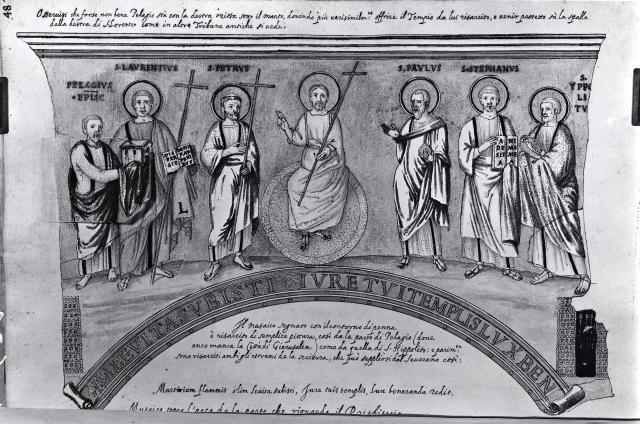 48
Osservisi che forse non bene Pelagio stà con la destra ... sotto il manto, dovendo più verisimilmte offrire il Tempio da lui risarcito, e venir protesto sù la spalla
della destra di S. Lorenzo come in altre Tribune antiche si vede.
PELAGIUS
EPISC
S·LAVRENTIVS
S·PETRVS
S·PAVLVS
S·STEPHANVS
S·
YPPO
LI
TV
L
...TASVBISTI · IVRETVITEMPLISLVXBEN
Il musaico segnato con il contorno di penna
è risarcito di semplice pittura, così da la parte di Pelagio (dove
anco manca la Città di Gierusalem) come da quella di S. Hippolito: e parimte
sono risarciti ambi gli estremi de la scrittura, che può supplirsi dal Severano così:
Martirium flammis olim Levita subisti, Jure tuis templis, lux beneranda redit.
Musaico sopra l'arco da la parte che riguarda il Presbiterio